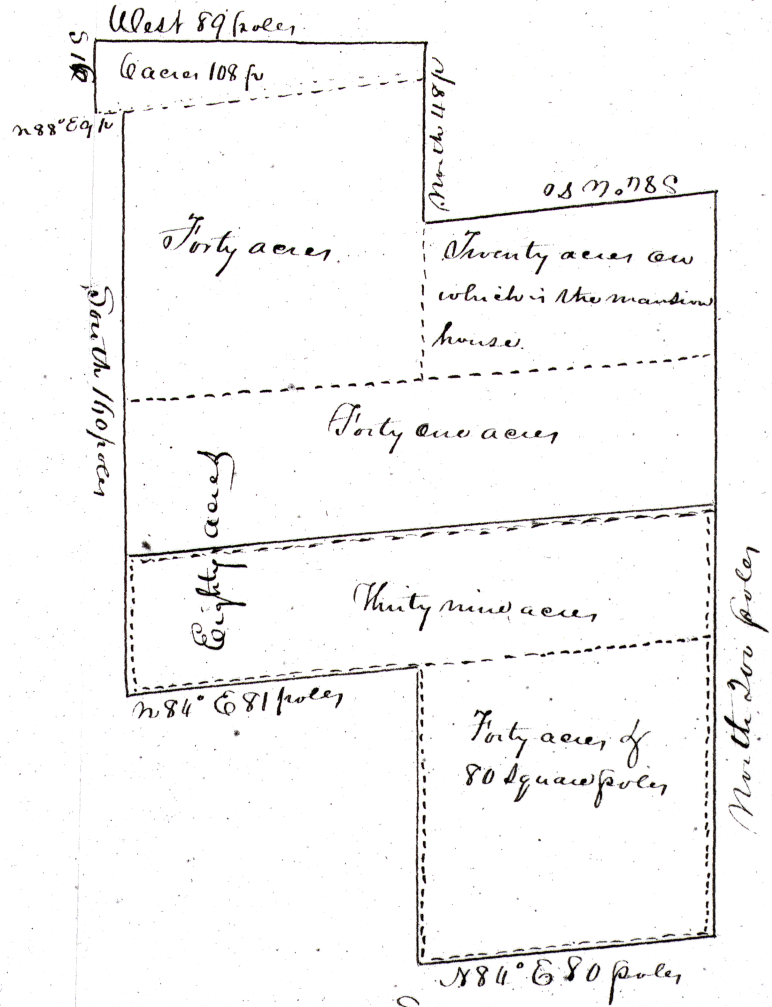 West 89 poles
S 16
6 acres 108 p
N 88° E 9 p
North 48 p
S 84° W 80
Forty acres
Twenty acres on
which is the mansion
house.
South 160 poles
Forty one acres
Eighty acres
Thirty nine acres
N 84° E 81 poles
Forty acres &
80 Square poles
North 200 poles
N 84° E 80 poles